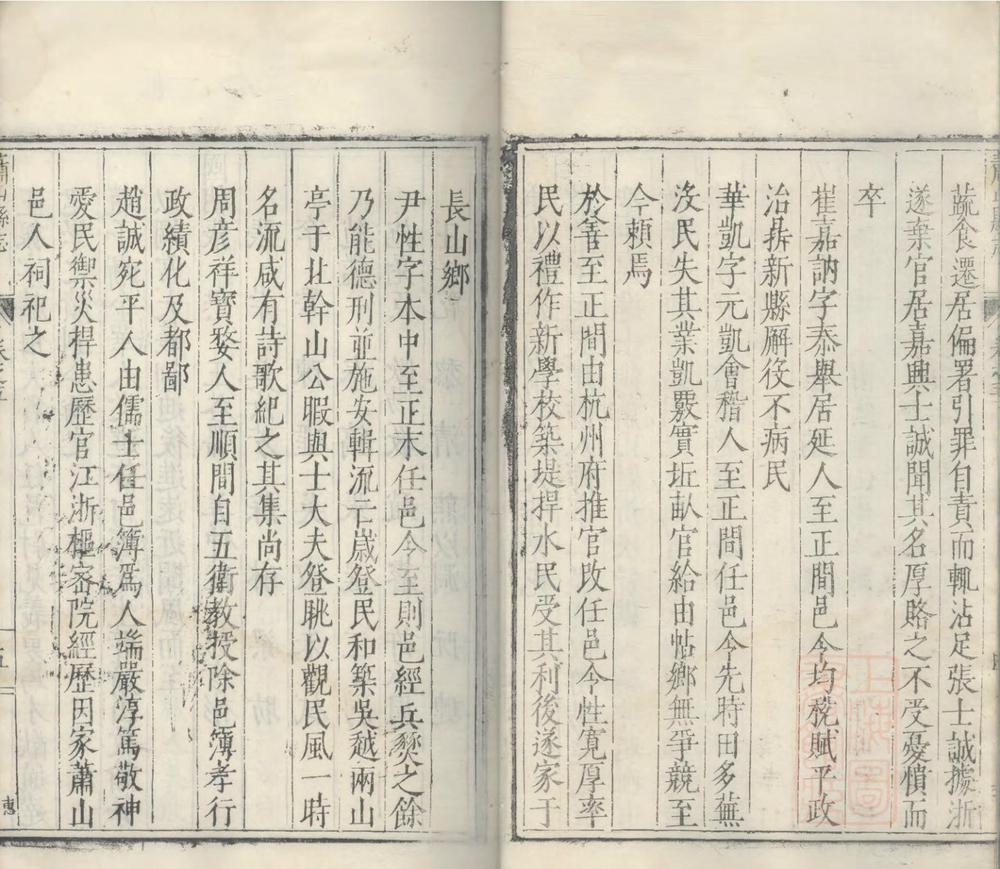 蔬食遷居偏署引罪自責而輒沾足張士誠據浙
遂棄官居嘉興士誠聞其名厚賂之不受憂憤而
卒
崔嘉訥字泰舉居延人至正間邑令均稅賦平政
治拆新縣廨役不病民
華凱字元凱會稽人至正間任邑令先時田多蕪
沒民失其業凱覈實坵畝官給由帖鄉無爭競至
今賴焉
於善至正間由杭州府推官改任邑令性寬厚率
民以禮作新學校築堤捍水民受其利後遂家于
長山鄉
尹性字本中至正末任邑令至則邑經兵燹之餘
乃能德刑並施安輯流亡歲登民和築吳越兩山
亭于北幹山公暇與士大夫登眺以觀民風一時
名流咸有詩歌紀之其集尚存
周彥祥寶婺人至順間自五衛教授除邑簿孝行
政績化及都鄙
趙誠宛平人由儒士任邑簿爲人端嚴淳篤敬神
愛民禦災捍患歷官江浙樞密院經歷因家蕭山
邑人祠祀之
蕭山縣志
卷之五
五
惠